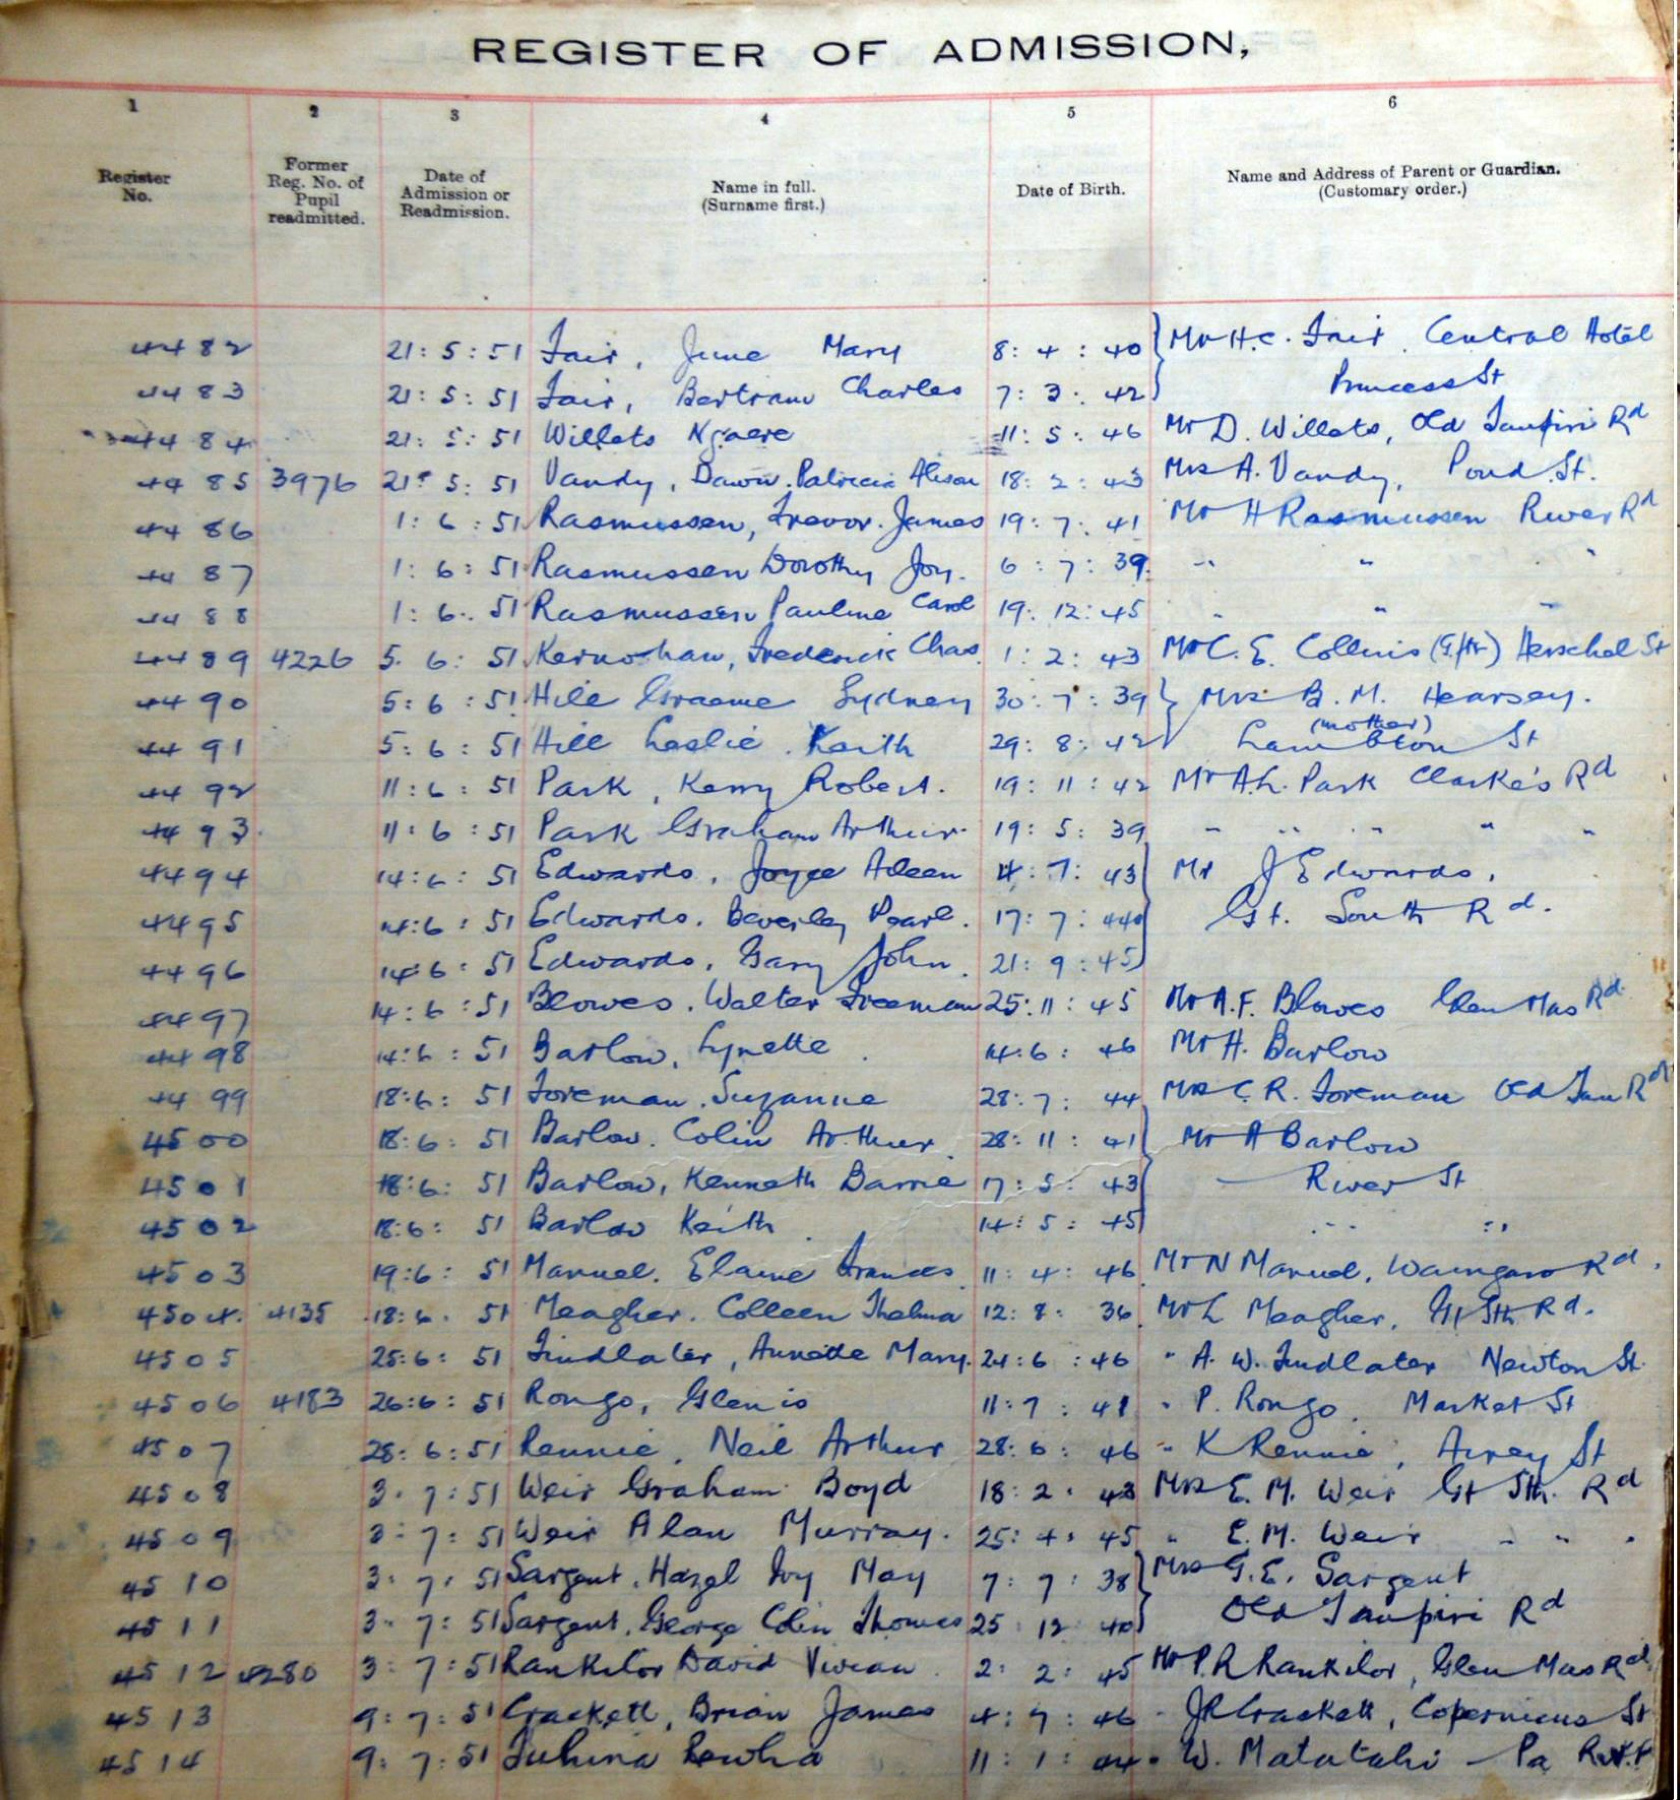 REGISTER OF ADMISSION,
1 2 3 4 5 6
Register No. Former Reg. No. of Pupil readmitted. Date of Admission or Readmission. Name in full. (Surname first.) Date of Birth. Name and Address of Parent or Guardian. (Customary order.)
4482 21:5:51 Fair, June Mary 8:4:40 Mr H.C. Fair. Central Hotel
4483 21:5:51 Fair, Bertram Charles 7:3:42 Princess St
4484 21:5:51 Willets Ngaere 11:5:46 Mr D. Willets, Old Taupiri Rd
4485 3976 21:5:51 Vandy, Dawn. Patricia Alison 18:2:43 Mrs A. Vandy, Pond St.
4486 1:6:51 Rasmussen, Trevor. James 19:7:41 Mr H Rasmussen River Rd
4487 1:6:51 Rasmussen Dorothy Joy. 6:7:39 " " "
4488 1:6:51 Rasmussen Pauline Carol 19:12:45 " " "
4489 4226 5.6:51 Kernohan, Frederick Chas. 1:2:43 Mr C. E. Collins (G/Fr) Herschel St
4490 5:6:51 Hill Graeme Sydney 30:7:39 Mrs B. M. Hearsey.
(mother)
4491 5:6:51 Hill Leslie. Keith 29:8:42 Lambton St
4492 11:6:51 Park, Kerry Robert. 19:11:42 Mr A.L. Park Clarke's Rd
4493 11:6:51 Park Graham Arthur. 19:5:39 " " " " "
4494 14:6:51 Edwards, Joyce Aileen 4:7:43 Mr J Edwards,
4495 14:6:51 Edwards. Beverley Pearl. 17:7:44 Gt. South Rd.
4496 14:6:51 Edwards, Gary John. 21:9:45
4497 14:6:51 Blowes. Walter Freeman 25:11:45 Mr A.F. Blowes Glen Mas Rd.
4498 14:6:51 Barlow, Lynette. 14:6:46 Mr H. Barlow
4499 18:6:51 Foreman. Suzanne 28:7:44 Mrs C. R. Foreman Old Tau Rd
4500 18:6:51 Barlow. Colin Arthur. 28:11:41 Mr A Barlow
4501 18:6:51 Barlow, Kenneth Barrie 17:5:43 River St
4502 18:6:51 Barlow Keith. 14:5:45 " "
4503 19:6:51 Manuel. Elaine Frances 11:4:46 Mr N Manuel, Waingaro Rd.
4504. 4135 18:6.51 Meagher. Colleen Thelma 12:8:36 Mr L Meagher, Gt Sth Rd.
4505 25:6:51 Findlater, Annette Mary. 24:6:46 " A. W. Findlater Newton St.
4506 4183 26:6:51 Rongo, Glenis 11:7:41 " P. Rongo. Market St
4507 28:6:51 Rennie, Neil Arthur 28:6:46 " K Rennie, Airey St
4508 3.7:51 Weir Graham Boyd 18:2.43 Mrs E. M. Weir Gt Sth. Rd
4509 3:7:51 Weir Alan Murray. 25:4:45 " E. M. Weir " " "
4510 3.7:51 Sargent, Hazel Ivy May 7:7:38 Mrs G. E. Sargent
4511 3.7:51 Sargent, George Colin Thomas 25:12:40 Old Taupiri Rd
4512 4280 3:7:51 Rankilor David Vivian. 2:2:45 Mr P. R Rankilor, Glen Mas Rd.
4513 9:7:51 Crackett, Brian James 4:7:46 " J R Crackett, Copernicus St
4514 9:7:51 Tuhina Rewha 11:1:44 " W. Matatahi - Pa